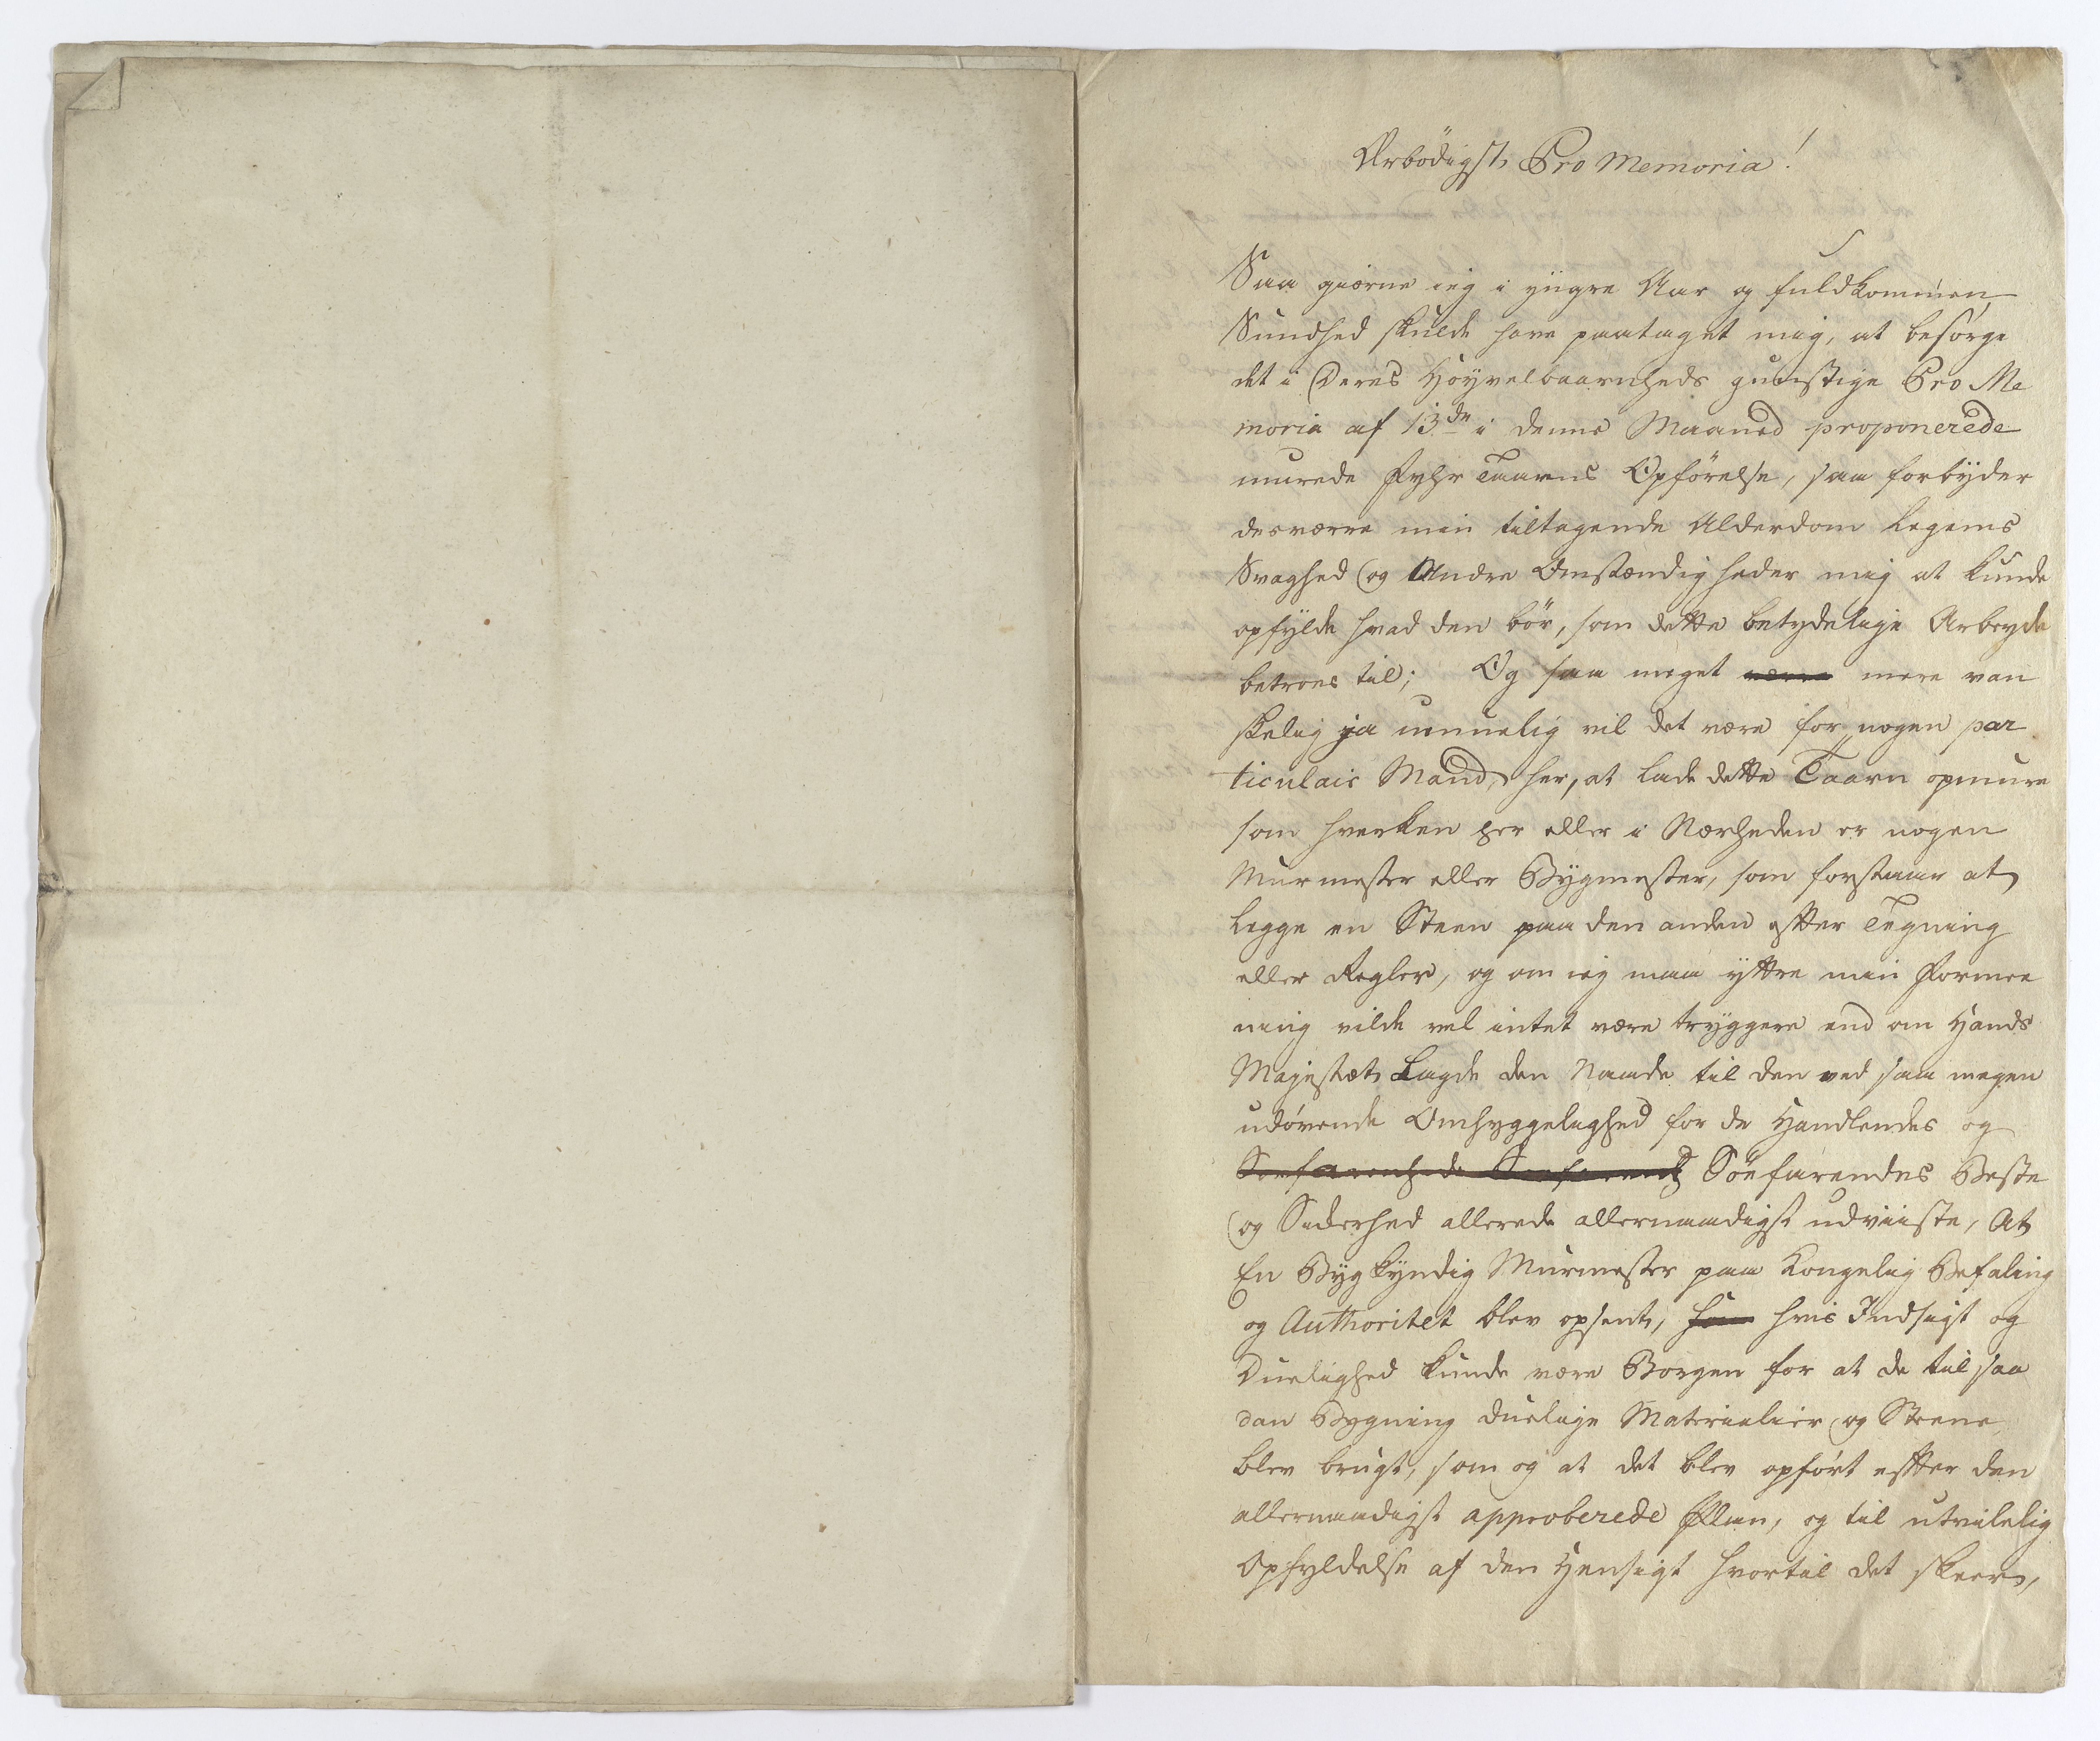 Ærbödigst Pro Memoria!
Saa giörne ieg i yngre Aar og fuldkommen
Sundhed skulde have paataget mig, at besörge
det i Deres Höyvelbaarnheds gunstige Pro Me
moria af 13de i denne Maaned proponerede
murede Fyhr Taarns Opförelse, saa forbyder
desværre min tiltagende Alderdom Legems
Svaghed og Andre Omstændigheder mig at kunde
opfylde hvad den bör, som dette betydelige Arbeyde
betroes til; Og saa meget være mere van
skelig ja umuelig vil det være for nogen par
ticulair Mand her, at lade dette Taarn opmure
som hverken her eller i Nærheden er nogen
Murmester eller Bygmester, som forstaar at
legge en Steen paa den anden efter Tegning
eller Regler, og om ieg maa yttre min Formee
ning vilde vel intet være tryggere end om Hands
Majestæt Lagde den Naade til den ved saa megen
udövende Omhyggelighed for de Handlendes og
Söefarendes Beste
og Sickerhed allerede allernaadigst udviiste, At
En Bygkyndig Murmester paa Kongelig Befaling
og Authoritet blev opsent, som hvis Indsigt og
Duelighed kunde være Borgen for at de til saa
dan Bygning duelige Materialier og Steene
blev brugt, som og at det blev opfört efter den
allernaadigst approberede Plan, og til utvilelig
Opfyldelse af den Hensigt hvortil det skeer,